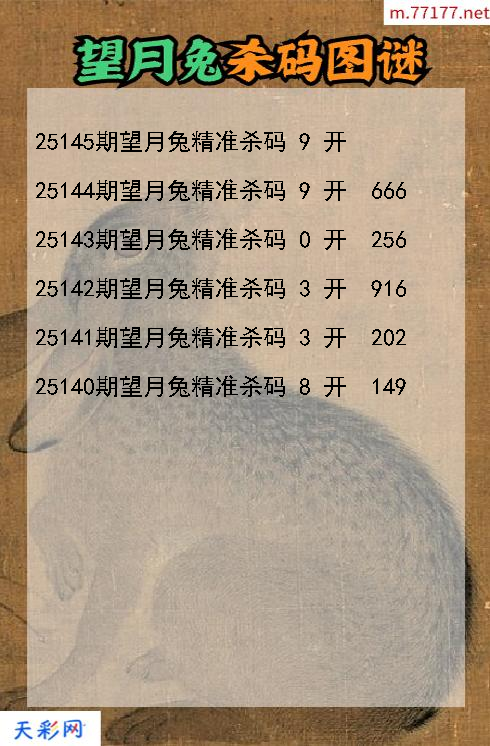 m.77177.net
望月兔杀码图谜
25145期望月兔精准杀码 9 开
25144期望月兔精准杀码 9 开 666
25143期望月兔精准杀码 0 开 256
25142期望月兔精准杀码 3 开 916
25141期望月兔精准杀码 3 开 202
25140期望月兔精准杀码 8 开 149
天彩网